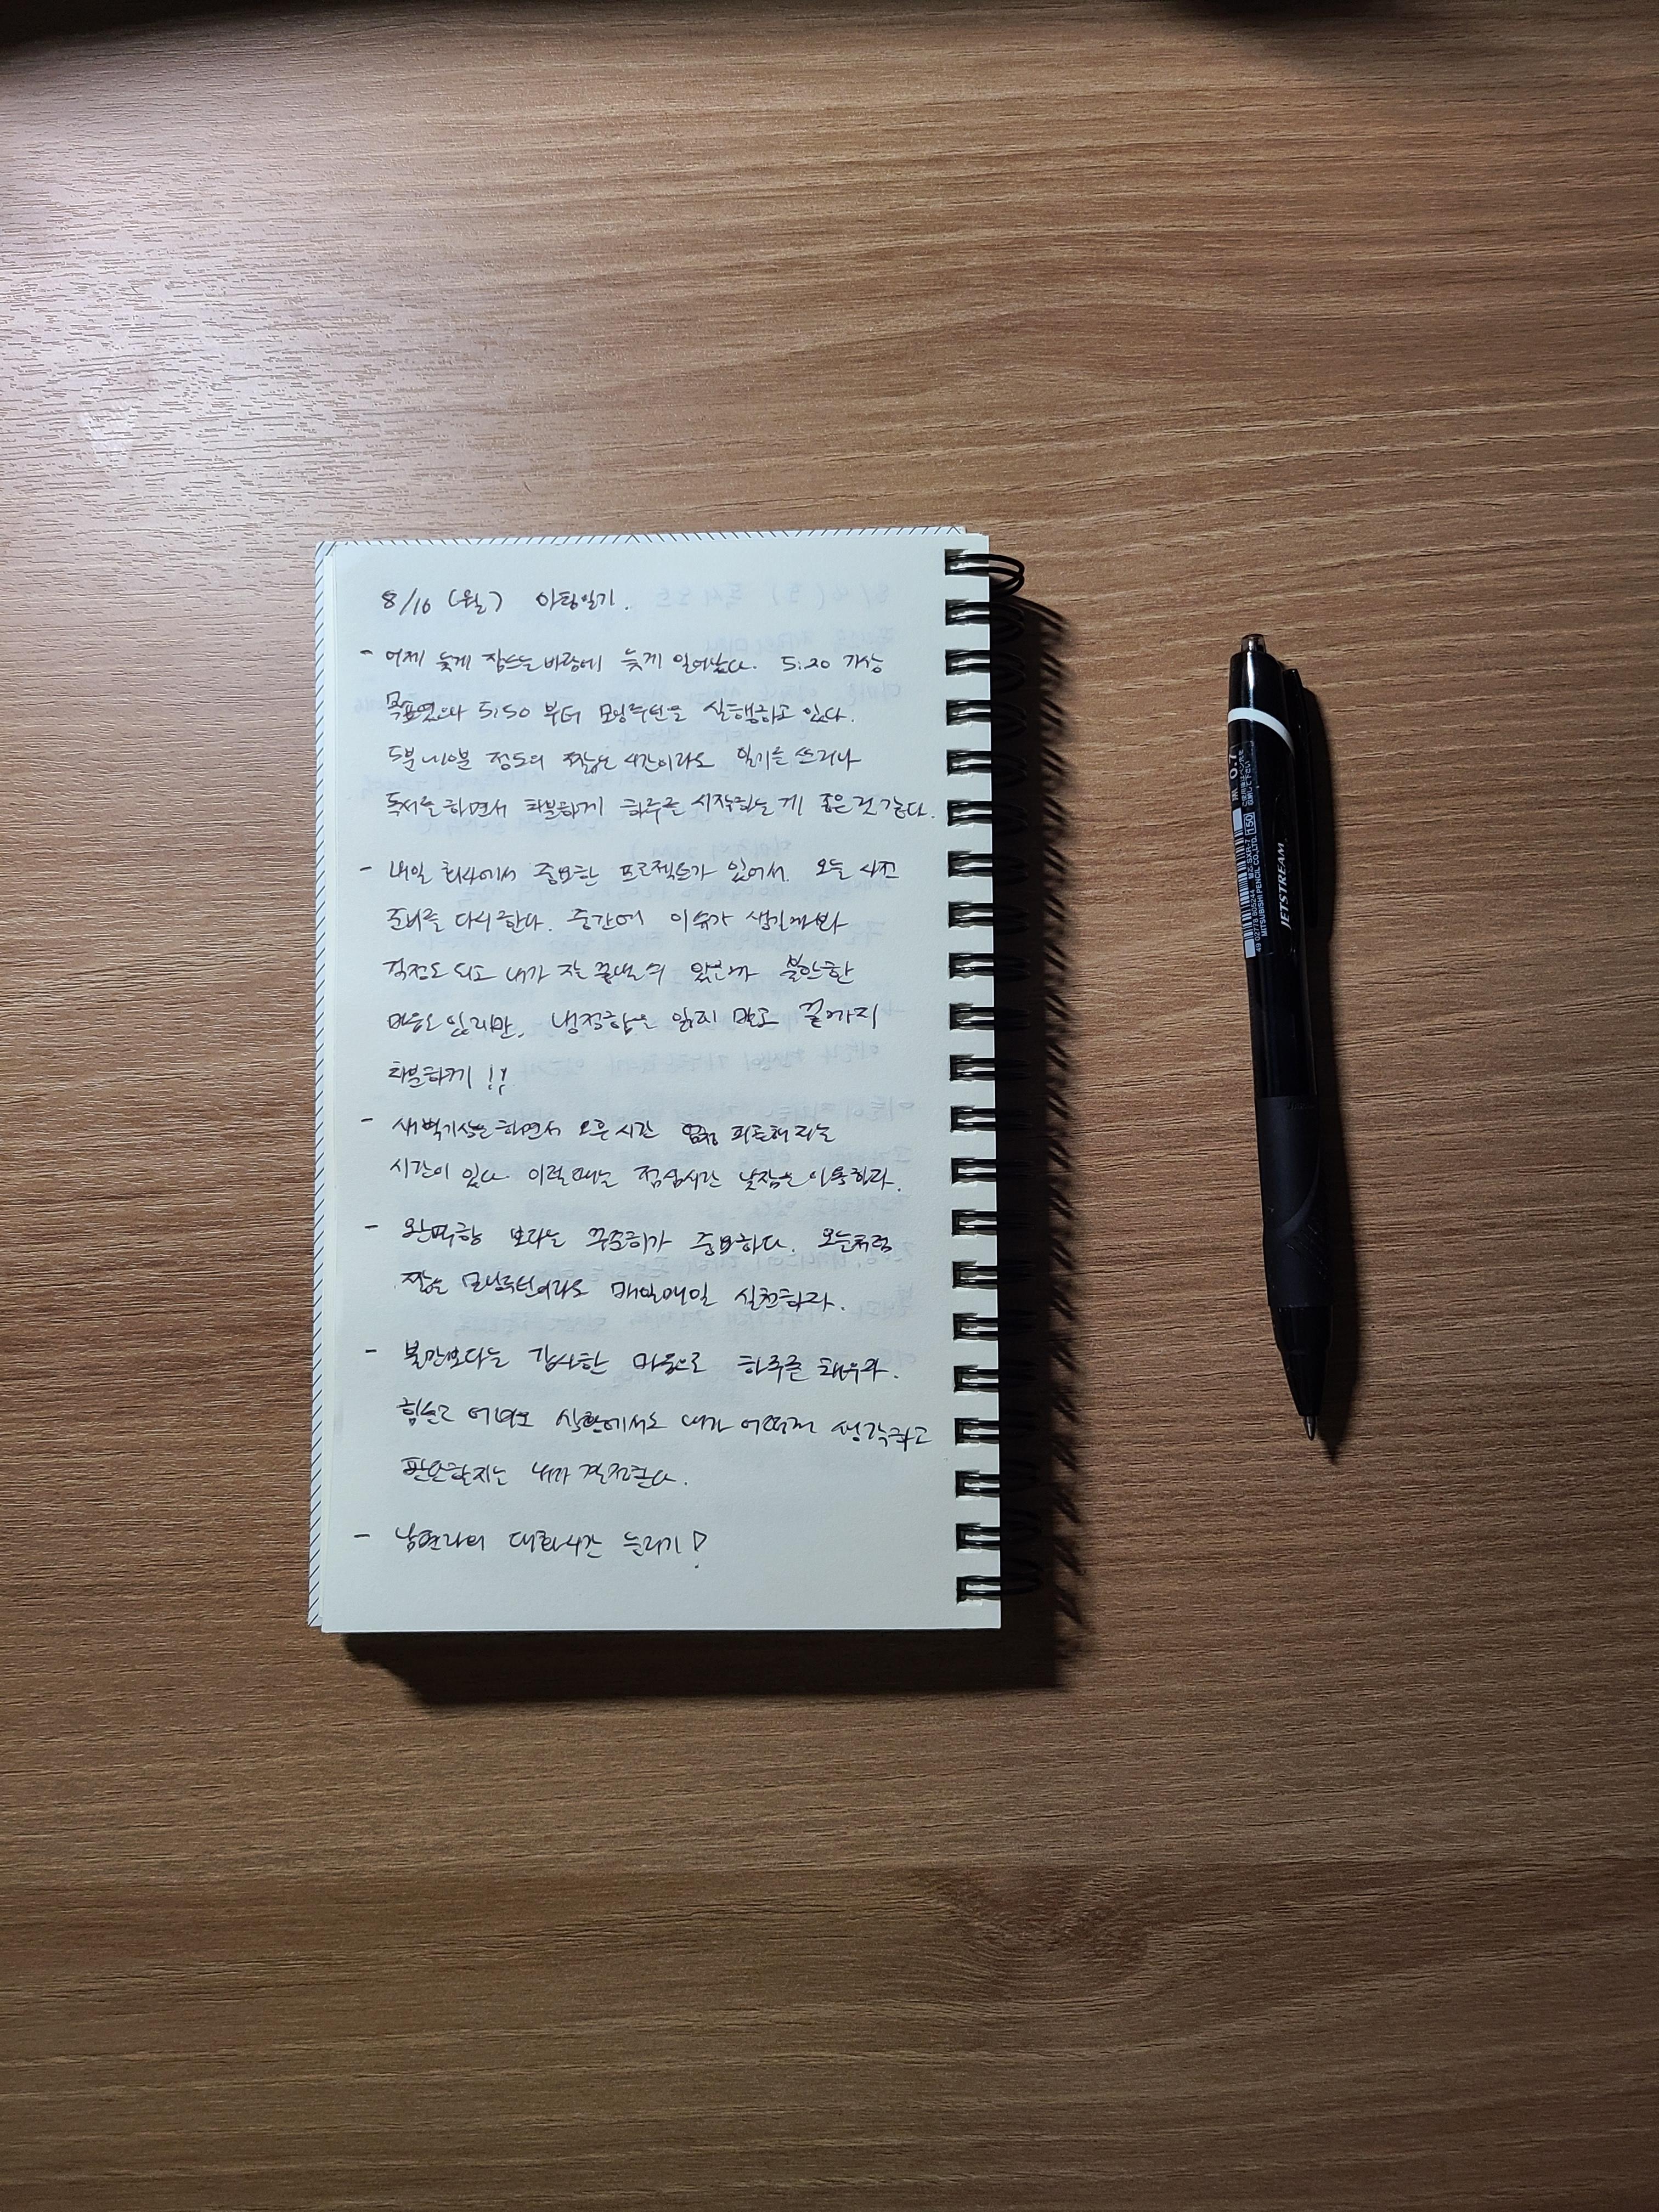 8/16 (월) 아침일기.
- 어제 늦게 잠드는 바람에 늦게 일어났다. 5:20 기상
목표였으나 5:50 부터 모닝루틴을 실행하고 있다.
5분~10분 정도의 짧은 시간이라도 일기를 쓰거나
독서를 하면서 차분하게 하루를 시작하는 게 좋은 것 같다.
- 내일 회사에서 중요한 프로젝트가 있어서 오늘 사전
준비를 다시 한다. 중간에 이슈가 생길까봐
걱정도 되고 내가 잘 끝낼 수 있을까 불안한
마음도 있지만, 냉정함을 잃지 말고 끝까지
차분하게 !!
- 새벽기상을 하면서 오후 시간 피곤해지는
시간이 있다 이럴 때는 점심시간 낮잠을 이용하라.
- 완벽함 보다는 꾸준히가 중요하다. 오늘처럼
짧은 모닝루틴이라도 매일매일 실천하라.
- 불만보다는 감사한 마음으로 하루를 채우라.
힘들고 어려운 상황에서도 내가 어떻게 생각하고
판단할지는 내가 결정한다.
- 남현과의 대화시간 늘리기!
0.7
150
49 02778 605244 SXR-7
MITSUBISHI PENCIL CO.,LTD.
JETSTREAM